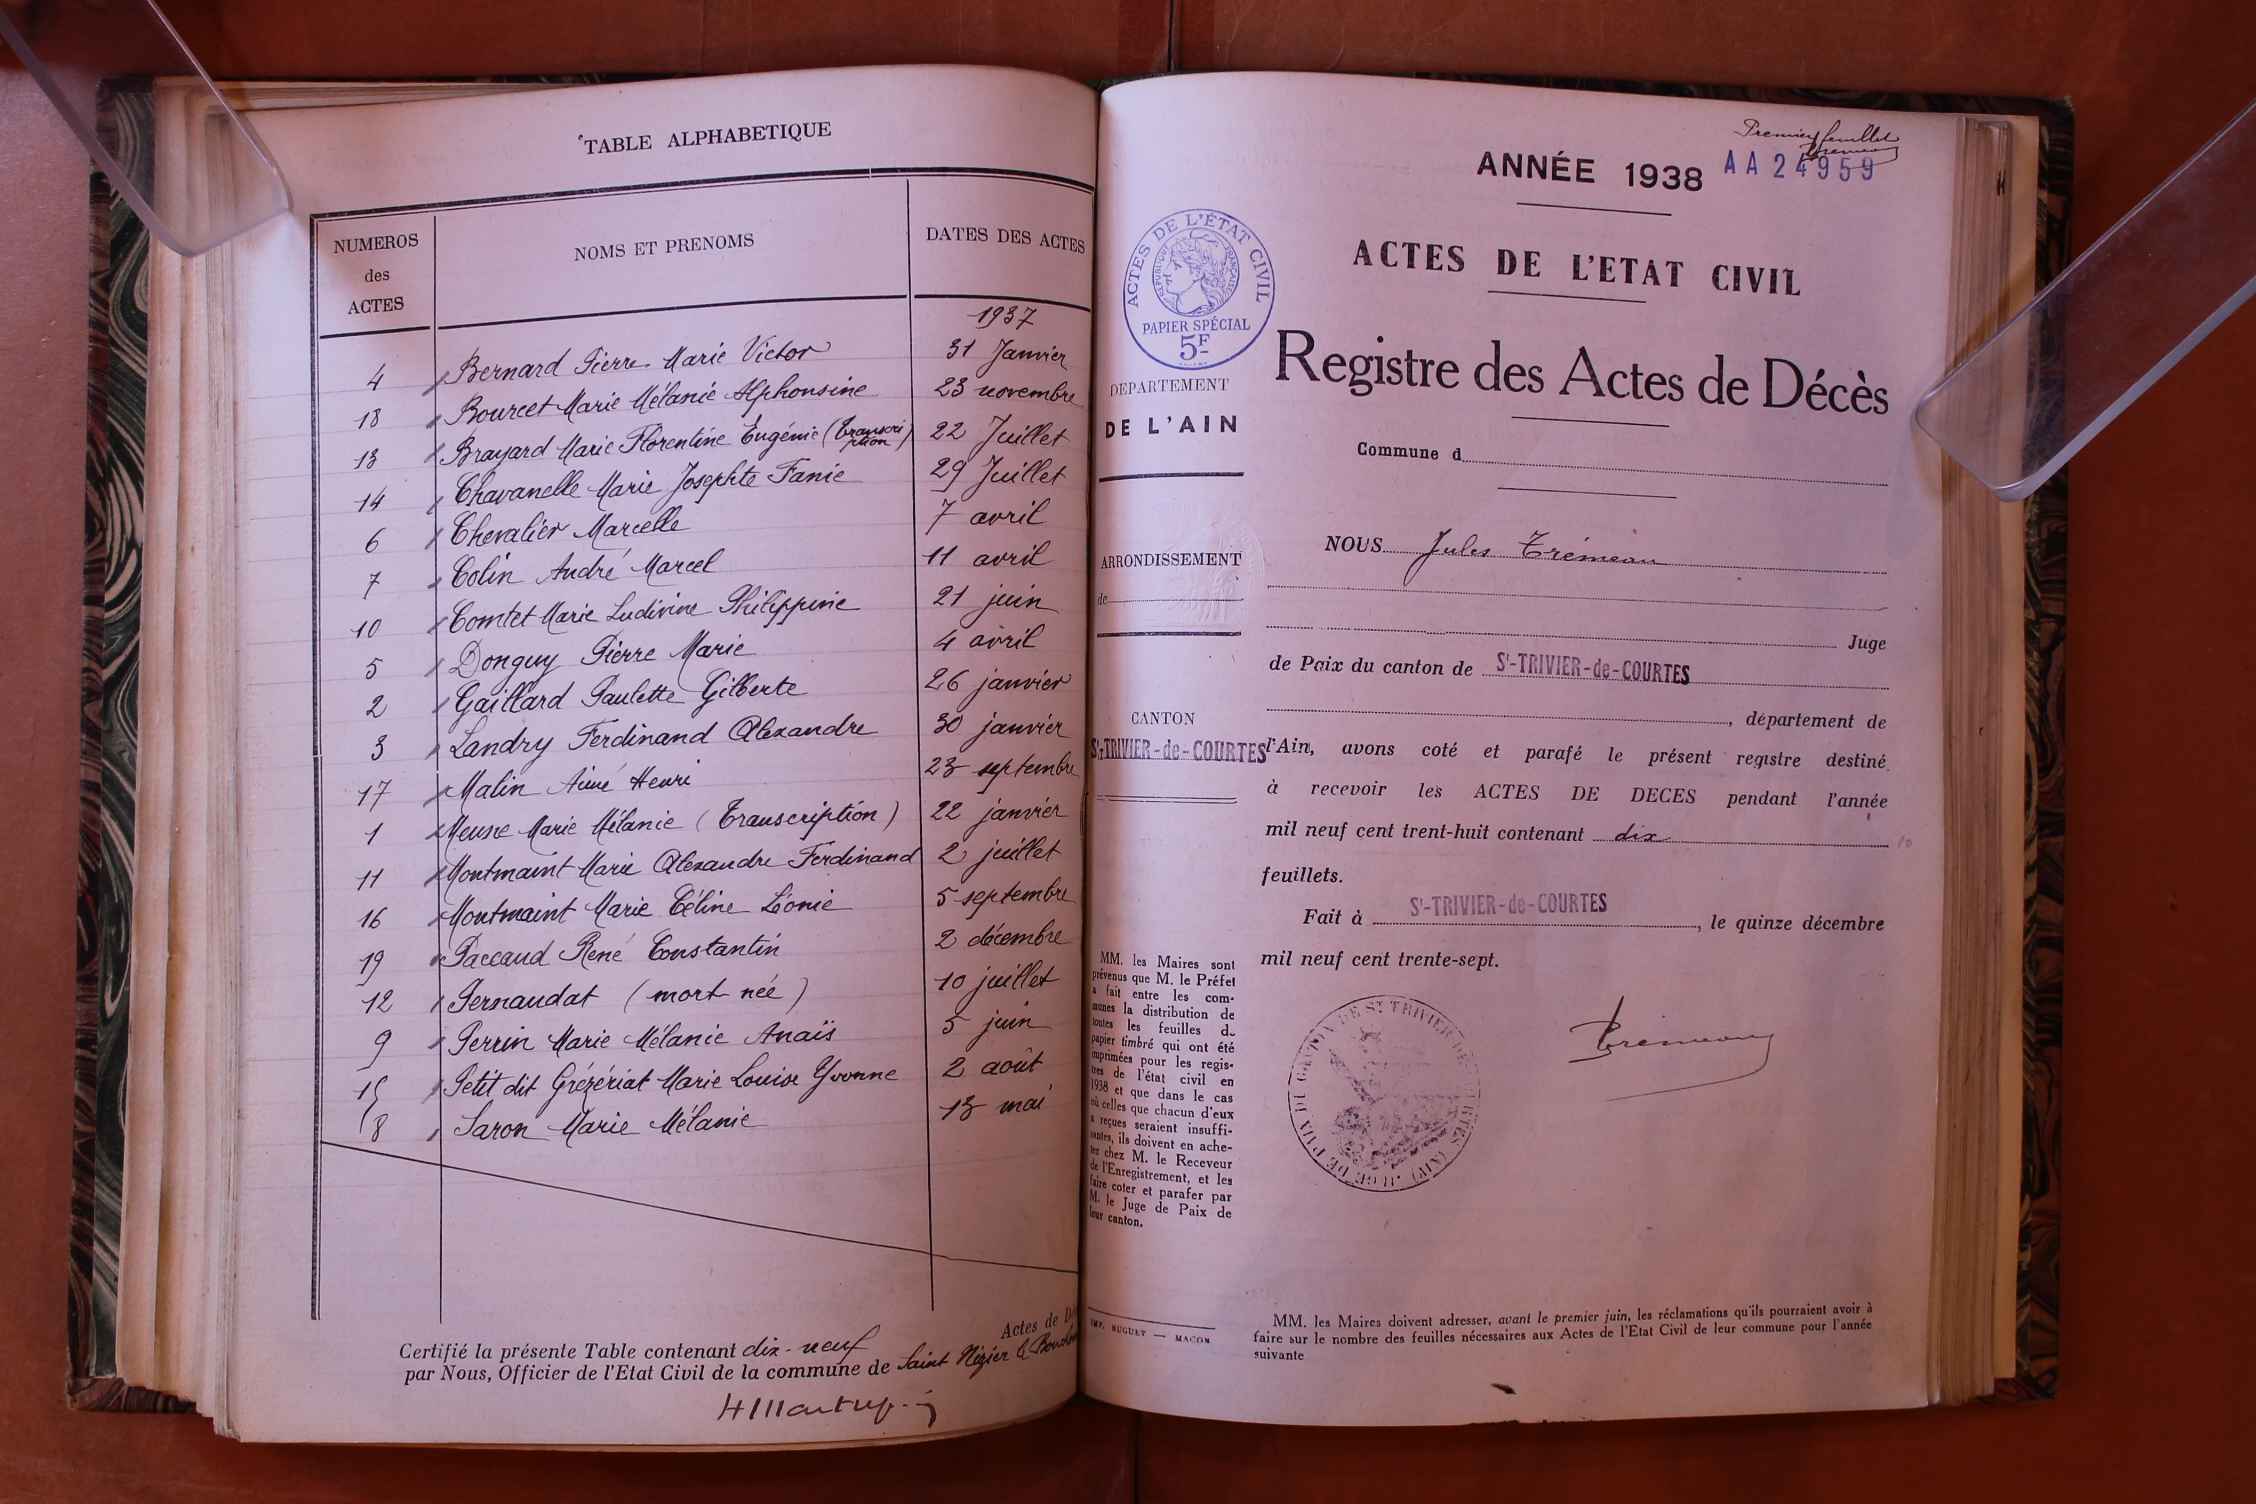 TABLE ALPHABETIQUE
NUMEROS des ACTES
NOMS ET PRENOMS
DATES DES ACTES
1937
4 Bernard Pierre Marie Victor 31 Janvier
18 Bourcet Marie Mélanie Alphonsine 23 novembre
13 Brayard Marie Florentine Eugénie (Transcription) 22 Juillet
14 Chavanelle Marie Josephte Fanie 29 Juillet
6 Chevalier Marcelle 7 avril
7 Colin André Marcel 11 avril
10 Comtet Marie Ludivine Philippine 21 juin
5 Donguy Pierre Marie 4 avril
2 Gaillard Paulette Gilberte 26 janvier
3 Landry Ferdinand Alexandre 30 janvier
17 Malin Aimé Henri 23 septembre
1 Meune Marie Mélanie (Transcription) 22 janvier
11 Montmaint Marie Alexandre Ferdinand 2 juillet
16 Montmaint Marie Céline Léonie 5 septembre
19 Paccaud René Constantin 2 décembre
12 Pernaudat (mort née) 10 juillet
9 Perrin Marie Mélanie Anaïs 5 juin
15 Petit dit Grézériat Marie Louise Yvonne 2 août
8 Saron Marie Mélanie 13 mai
Certifié la présente Table contenant dix-neuf Actes de
par Nous, Officier de l'Etat Civil de la commune de Saint Nizier le
Premier feuillet
Trémeau
ANNÉE 1938 AA 24959
ACTES DE L'ÉTAT CIVIL
RÉPUBLIQUE FRANÇAISE
PAPIER SPÉCIAL
5F
ACTES DE L'ETAT CIVIL
Registre des Actes de Décès
DEPARTEMENT
DE L'AIN
Commune d
ARRONDISSEMENT
de
CANTON
St-TRIVIER-de-COURTES
NOUS Jules Trémeau
Juge
de Paix du canton de St-TRIVIER-de-COURTES
, département de
l'Ain, avons coté et parafé le présent registre destiné
à recevoir les ACTES DE DECES pendant l'année
mil neuf cent trent-huit contenant dix 10
feuillets.
Fait à St-TRIVIER-de-COURTES, le quinze décembre
mil neuf cent trente-sept.
Trémeau
MM. les Maires sont
prévenus que M. le Préfet
a fait entre les com-
munes la distribution de
toutes les feuilles de
papier timbré qui ont été
imprimées pour les regis-
tres de l'état civil en
1938 et que dans le cas
où celles que chacun d'eux
a reçues seraient insuffi-
santes, ils doivent en ache-
ter chez M. le Receveur
de l'Enregistrement, et les
faire coter et parafer par
M. le Juge de Paix de
leur canton.
IMP. BUGUET — MACON
MM. les Maires doivent adresser, avant le premier juin, les réclamations qu'ils pourraient avoir à
faire sur le nombre des feuilles nécessaires aux Actes de l'Etat Civil de leur commune pour l'année
suivante